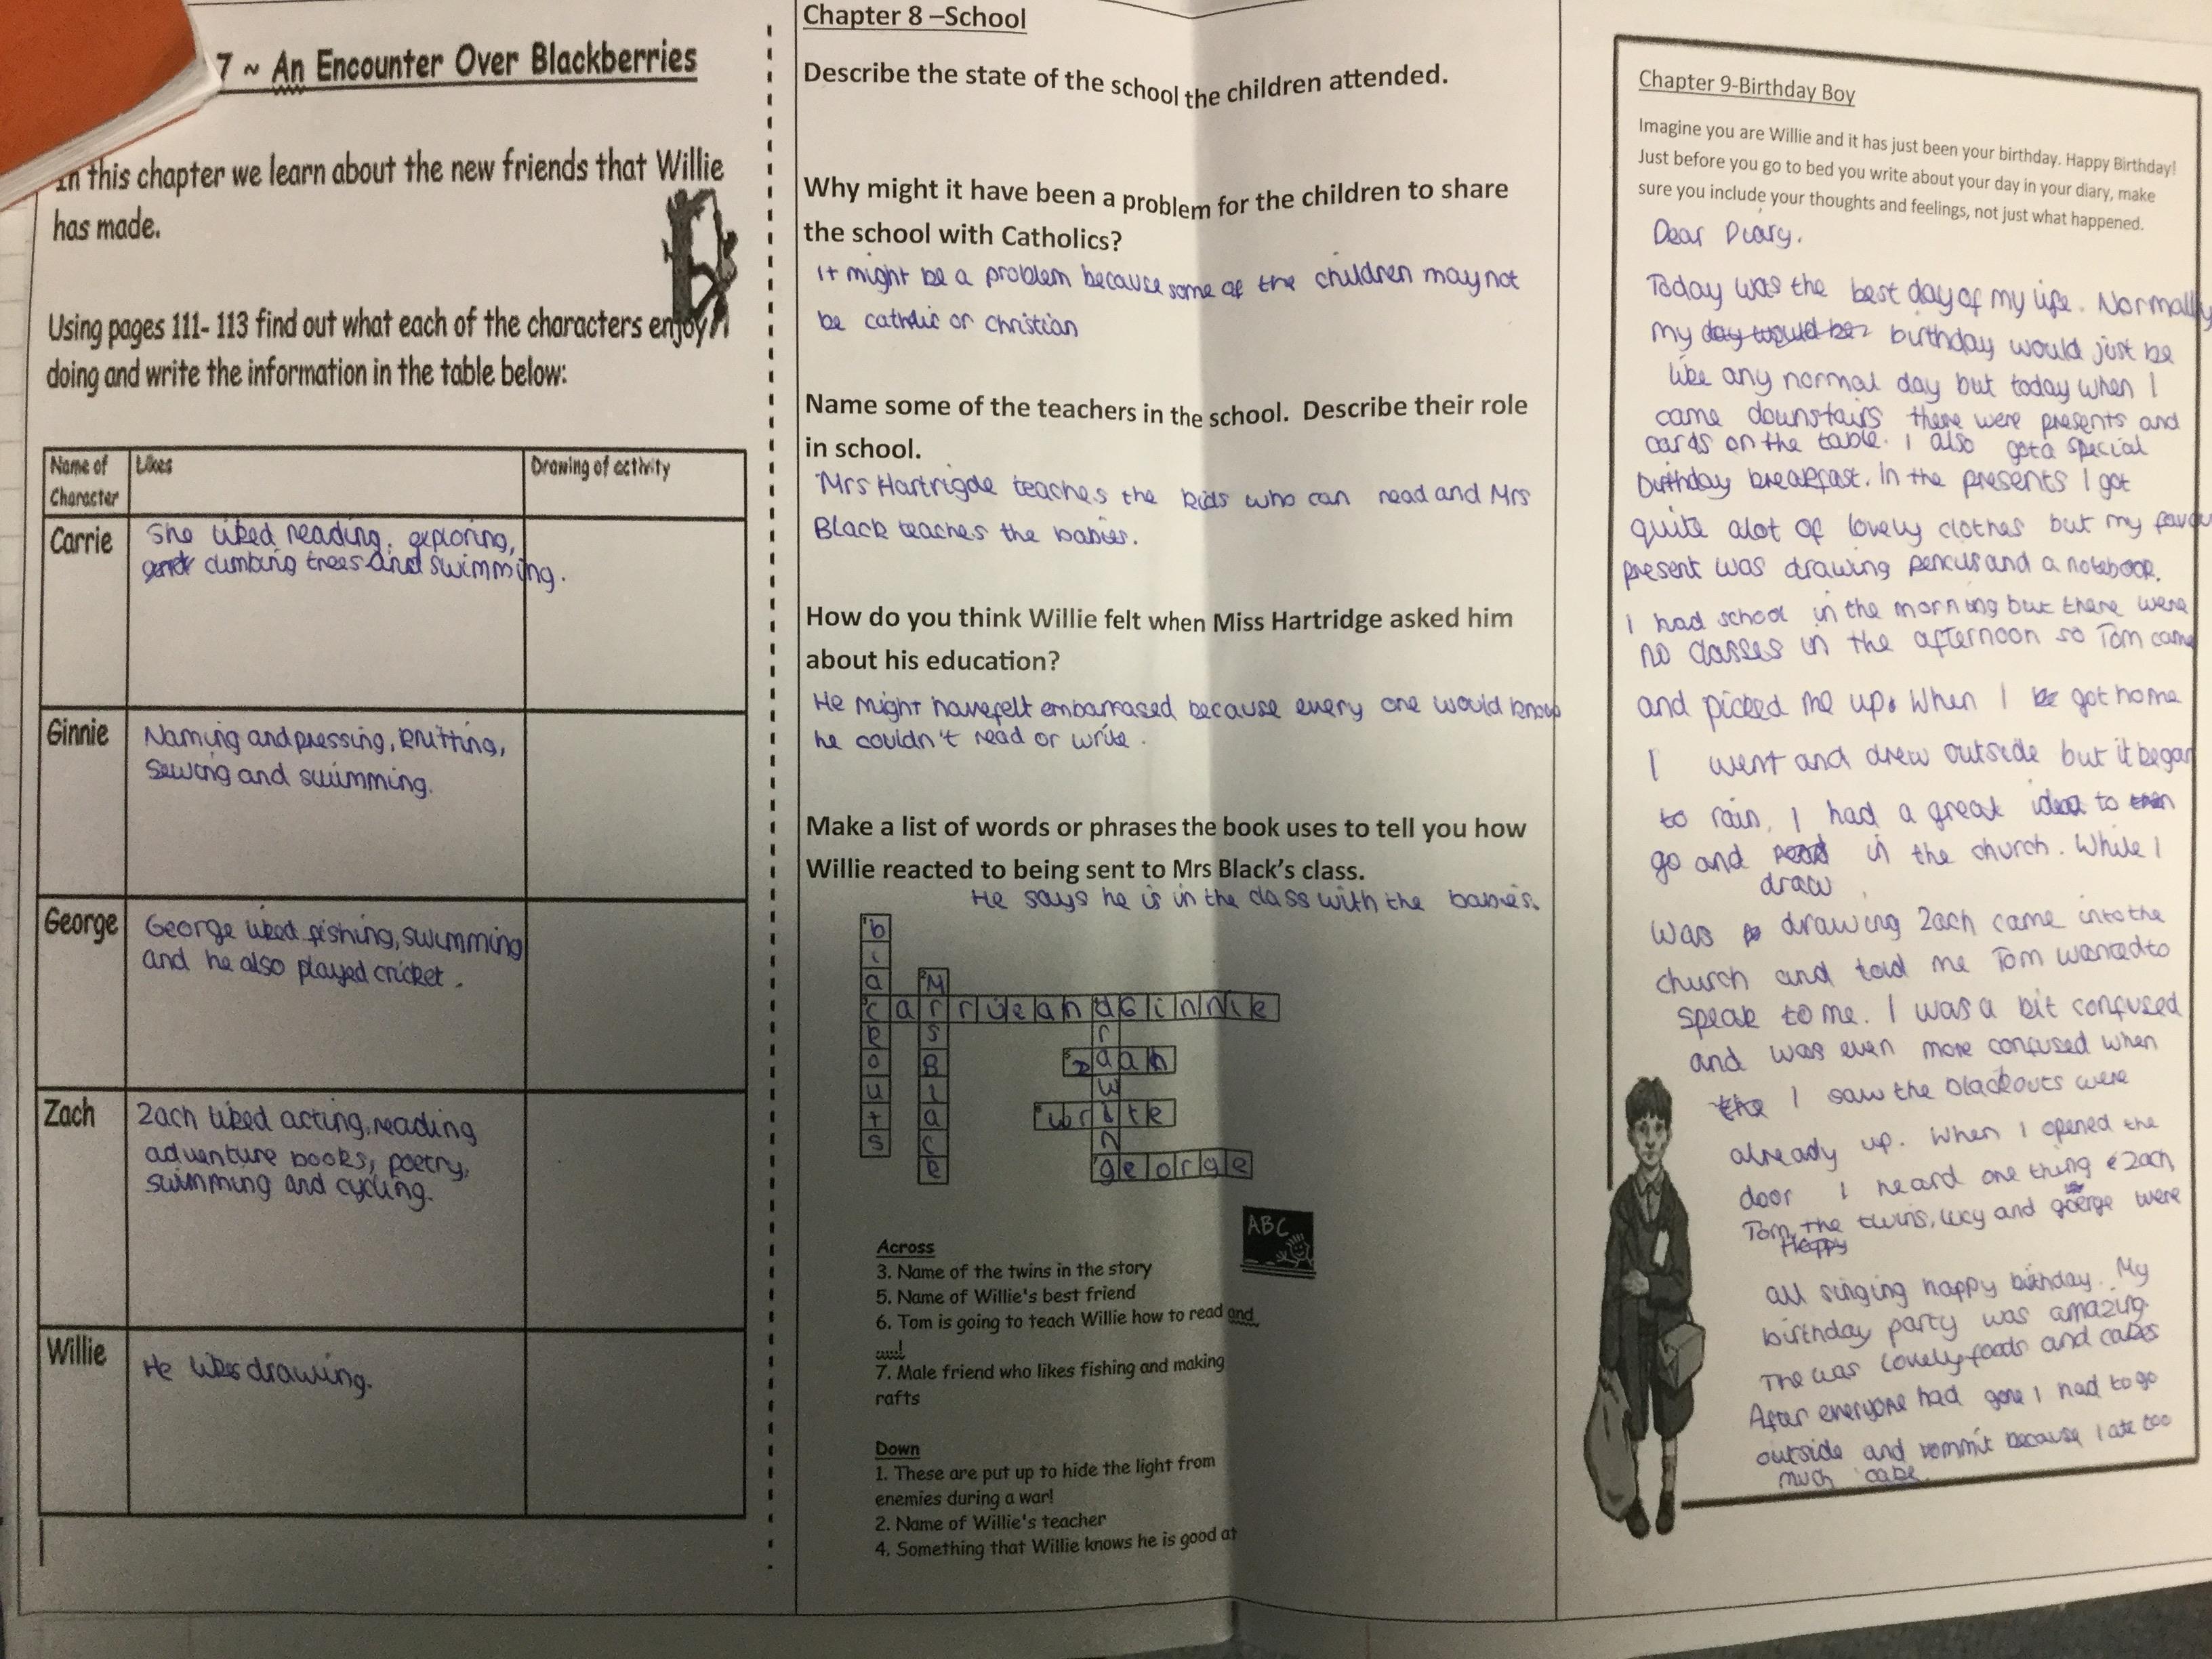 7 ~ An Encounter Over Blackberries
In this chapter we learn about the new friends that Willie
has made.
Using pages 111- 113 find out what each of the characters enjoy
doing and write the information in the table below:
Name of
Character
Likes
Drawing of activity
Carrie
She liked reading, exploring,
climbing trees and swimming.
Ginnie
Naming and pressing, knitting,
sewing and swimming.
George
George liked fishing, swimming
and he also played cricket.
Zach
Zach liked acting, reading
adventure books, poetry,
swimming and cycling.
Willie
He likes drawing.
Chapter 8 –School
Describe the state of the school the children attended.
Why might it have been a problem for the children to share
the school with Catholics?
It might be a problem because some of the children may not
be catholic or christian
Name some of the teachers in the school. Describe their role
in school.
Mrs Hartrigde teaches the kids who can read and Mrs
Black teaches the babies.
How do you think Willie felt when Miss Hartridge asked him
about his education?
He might have felt embarrased because every one would know
he couldn't read or write.
Make a list of words or phrases the book uses to tell you how
Willie reacted to being sent to Mrs Black's class.
He says he is in the class with the babies.
carrieandGinnie
zach
write
george
MrsBlack
drawing
ABC
Across
3. Name of the twins in the story
5. Name of Willie's best friend
6. Tom is going to teach Willie how to read and
7. Male friend who likes fishing and making
rafts
Down
1. These are put up to hide the light from
enemies during a war!
2. Name of Willie's teacher
4. Something that Willie knows he is good at
Chapter 9-Birthday Boy
Imagine you are Willie and it has just been your birthday. Happy Birthday!
Just before you go to bed you write about your day in your diary, make
sure you include your thoughts and feelings, not just what happened.
Dear Diary.
Today was the best day of my life. Normally
my day would be birthday would just be
like any normal day but today when I
came downstairs there were presents and
cards on the table. I also got a special
birthday breakfast. In the presents I got
quite alot of lovely clothes but my
present was drawing pencils and a notebook.
I had school in the morning but there were
no classes in the afternoon so Tom came
and picked me up. When I got home
I went and drew outside but it began
to rain, I had a great idea to
go and read in the church. While I
draw
was drawing Zach came into the
church and told me Tom wanted to
speak to me. I was a bit confused
and was even more confused when
the I saw the blackouts were
already up. When I opened the
door I heard one thing Zach
Tom, the twins, lucy and goerge were
Happy
all singing happy birthday. My
birthday party was amazing.
The was lovely foods and cakes
After everyone had gone I had to go
outside and vommit because I ate too
much cake.